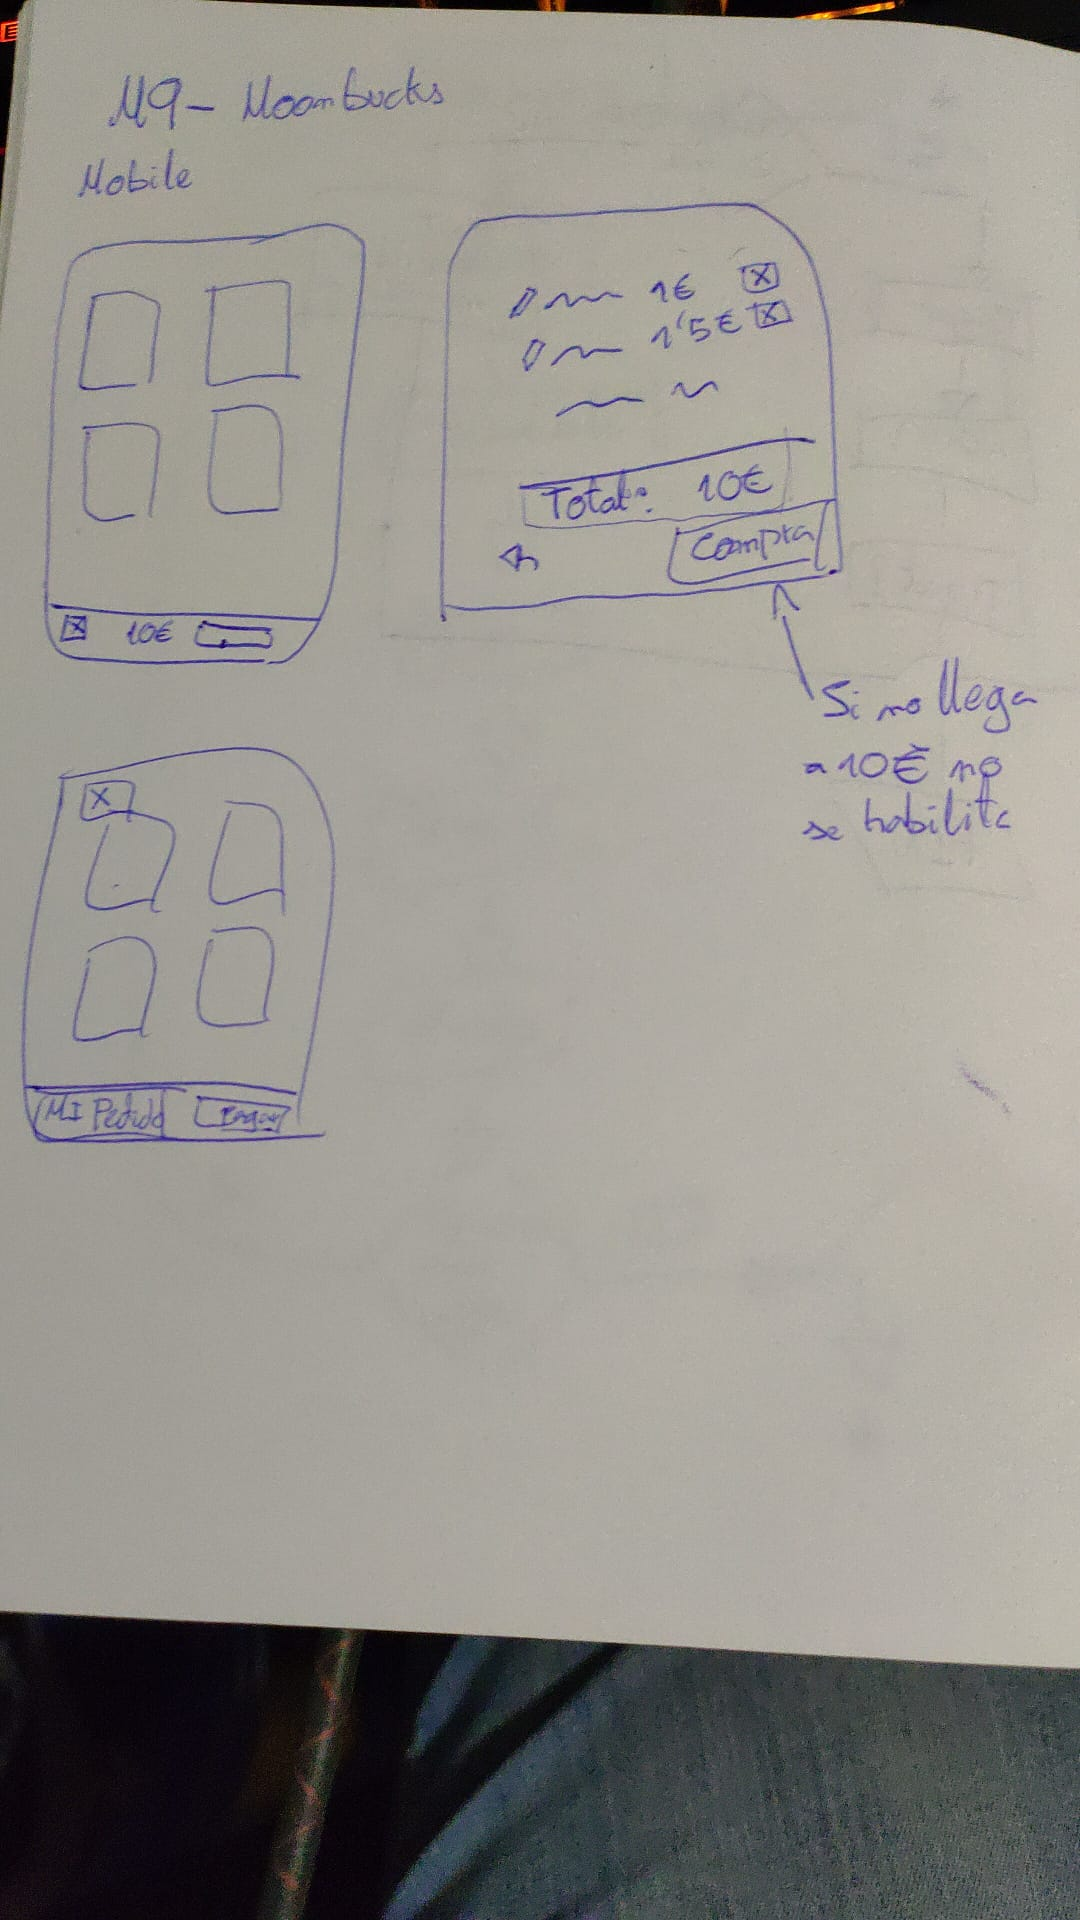 M9- Moonbucks
Mobile
1€ X
1'5€ X
Total: 10€
Compra
X 10€
Si no llega
a 10€ no
se habilita
X
Mi Pedido Pagar